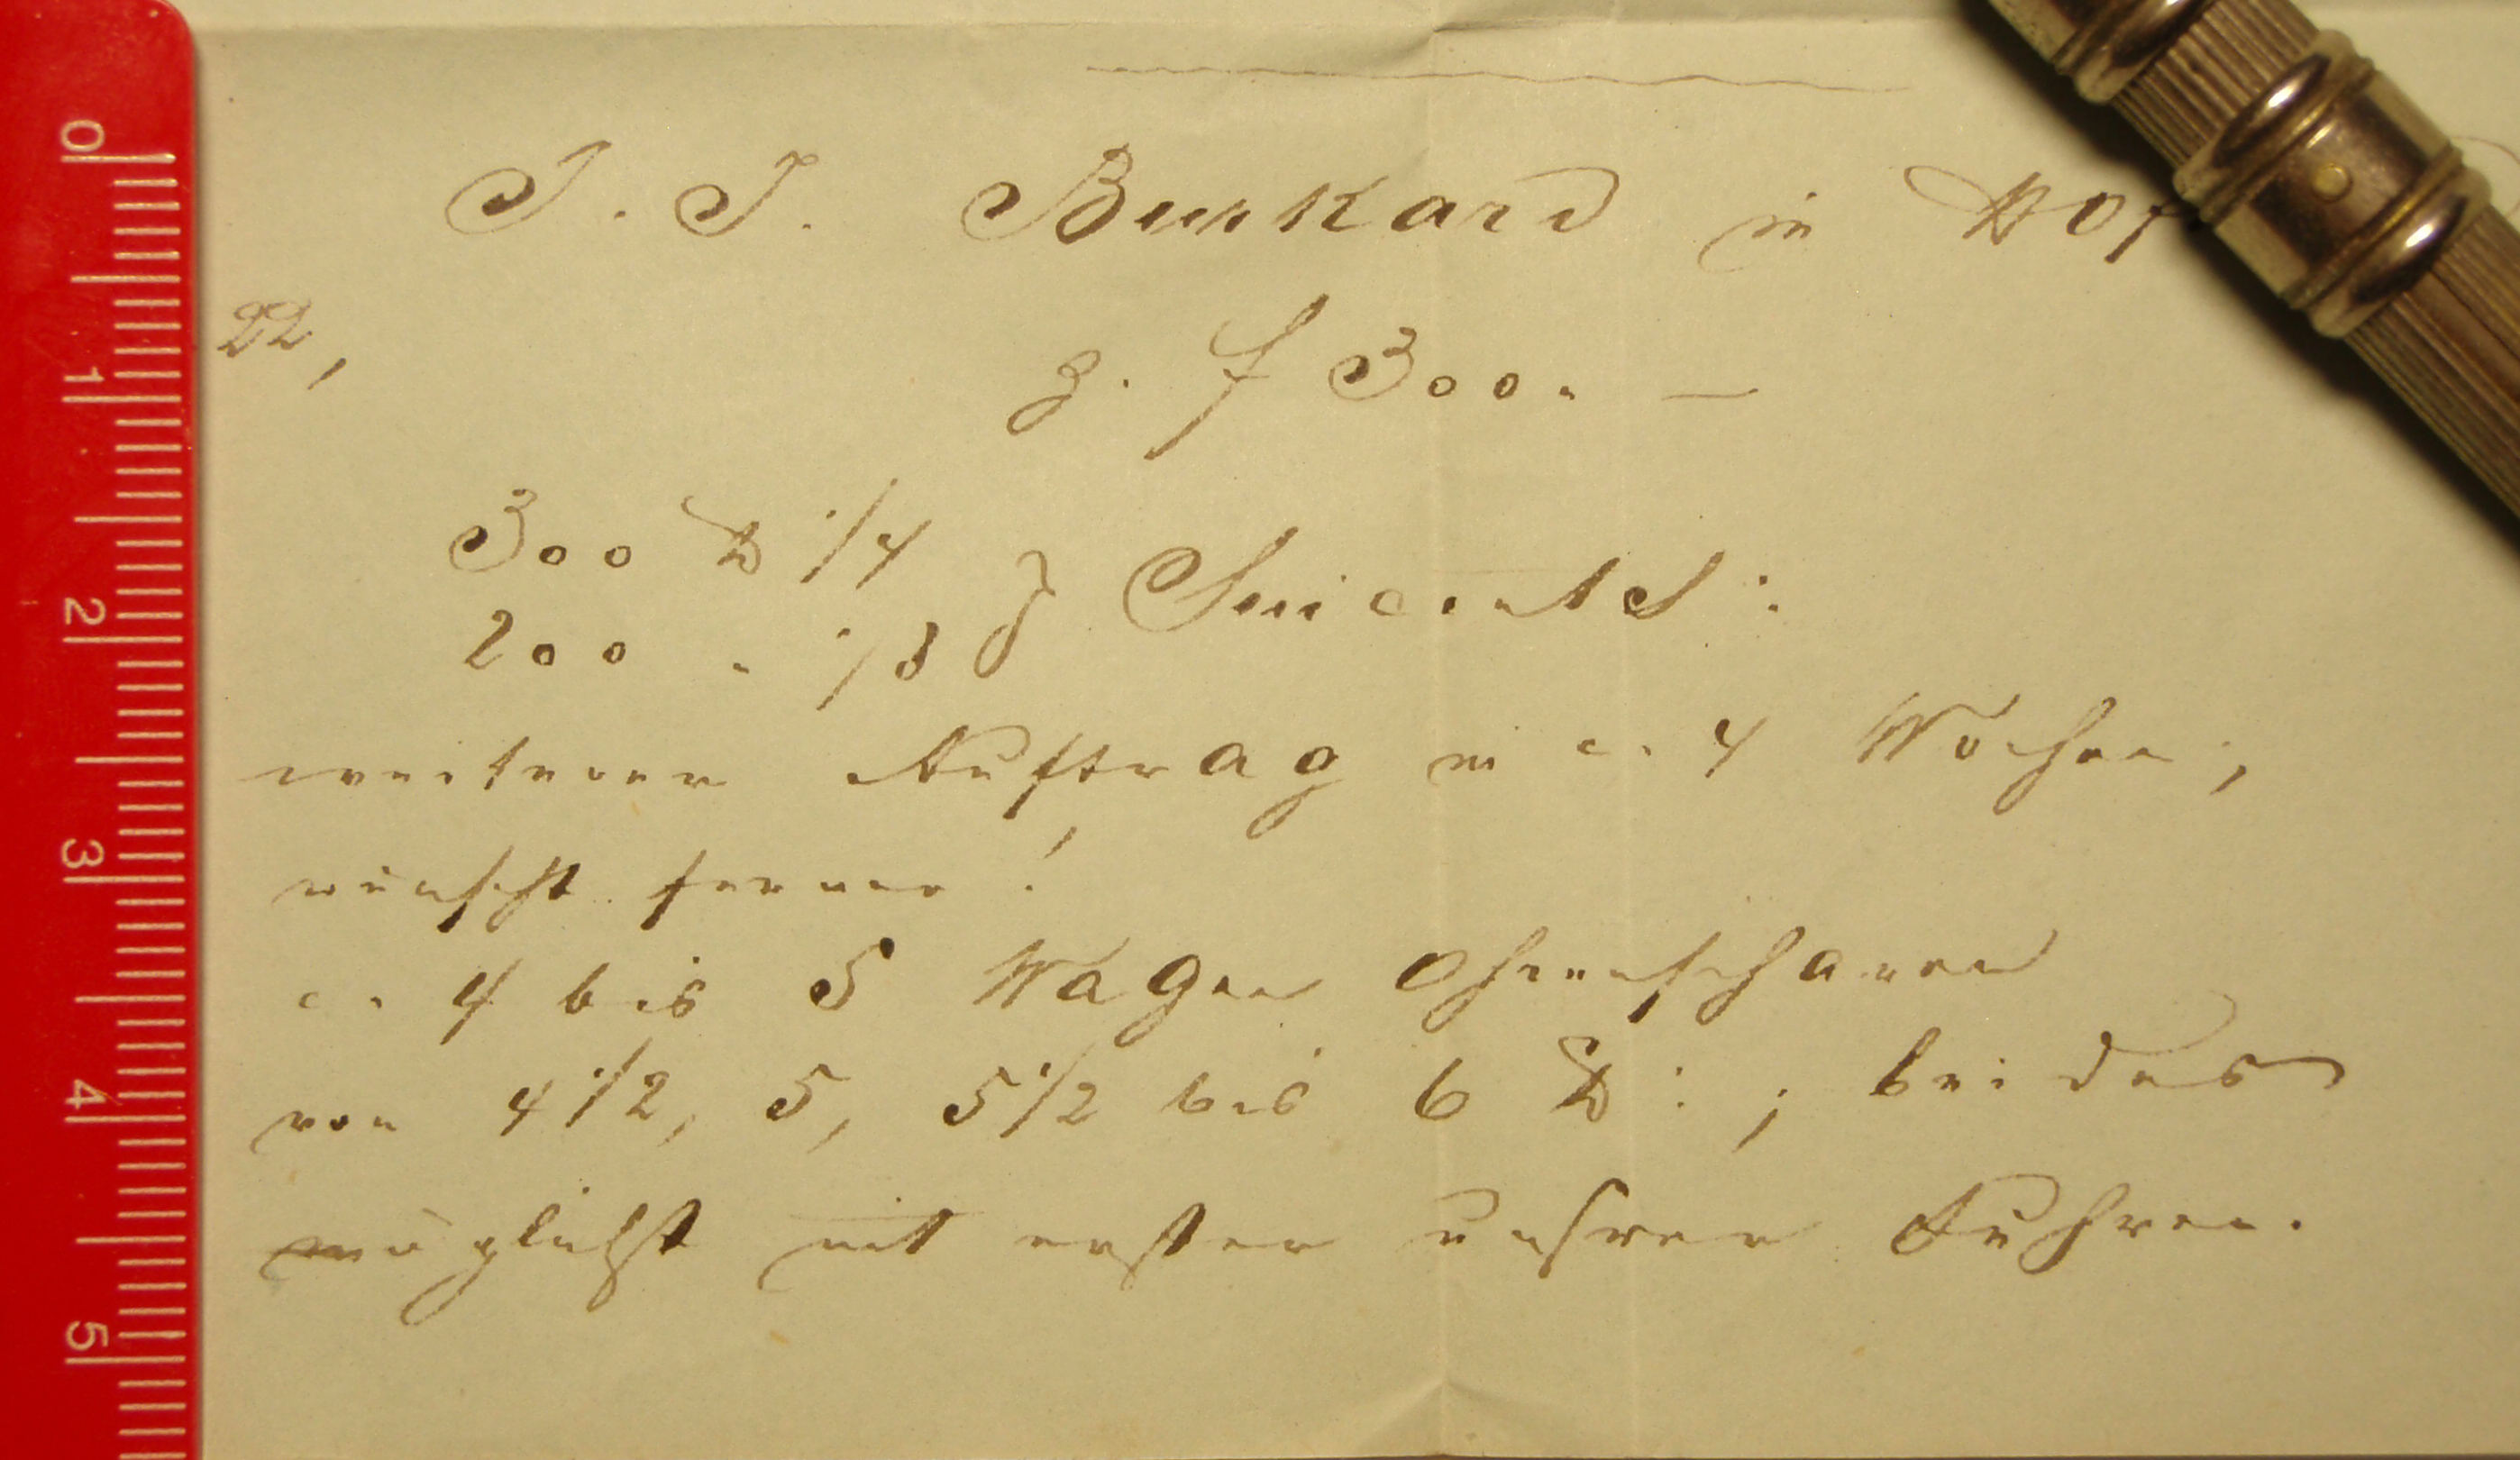 J. J. Burkard in Hof
22,
z. f 300. —
300 ℔ 1/4
200 " 1/3
weiteren Auftrag in c. 4 Wochen;
wünscht ferner!
c. 4 bis 5 Wagen
von 4 1/2, 5, 5 1/2 bis 6 ℔:; beides
möglichst mit ersten unsren Fuhren.
0
1
2
3
4
5